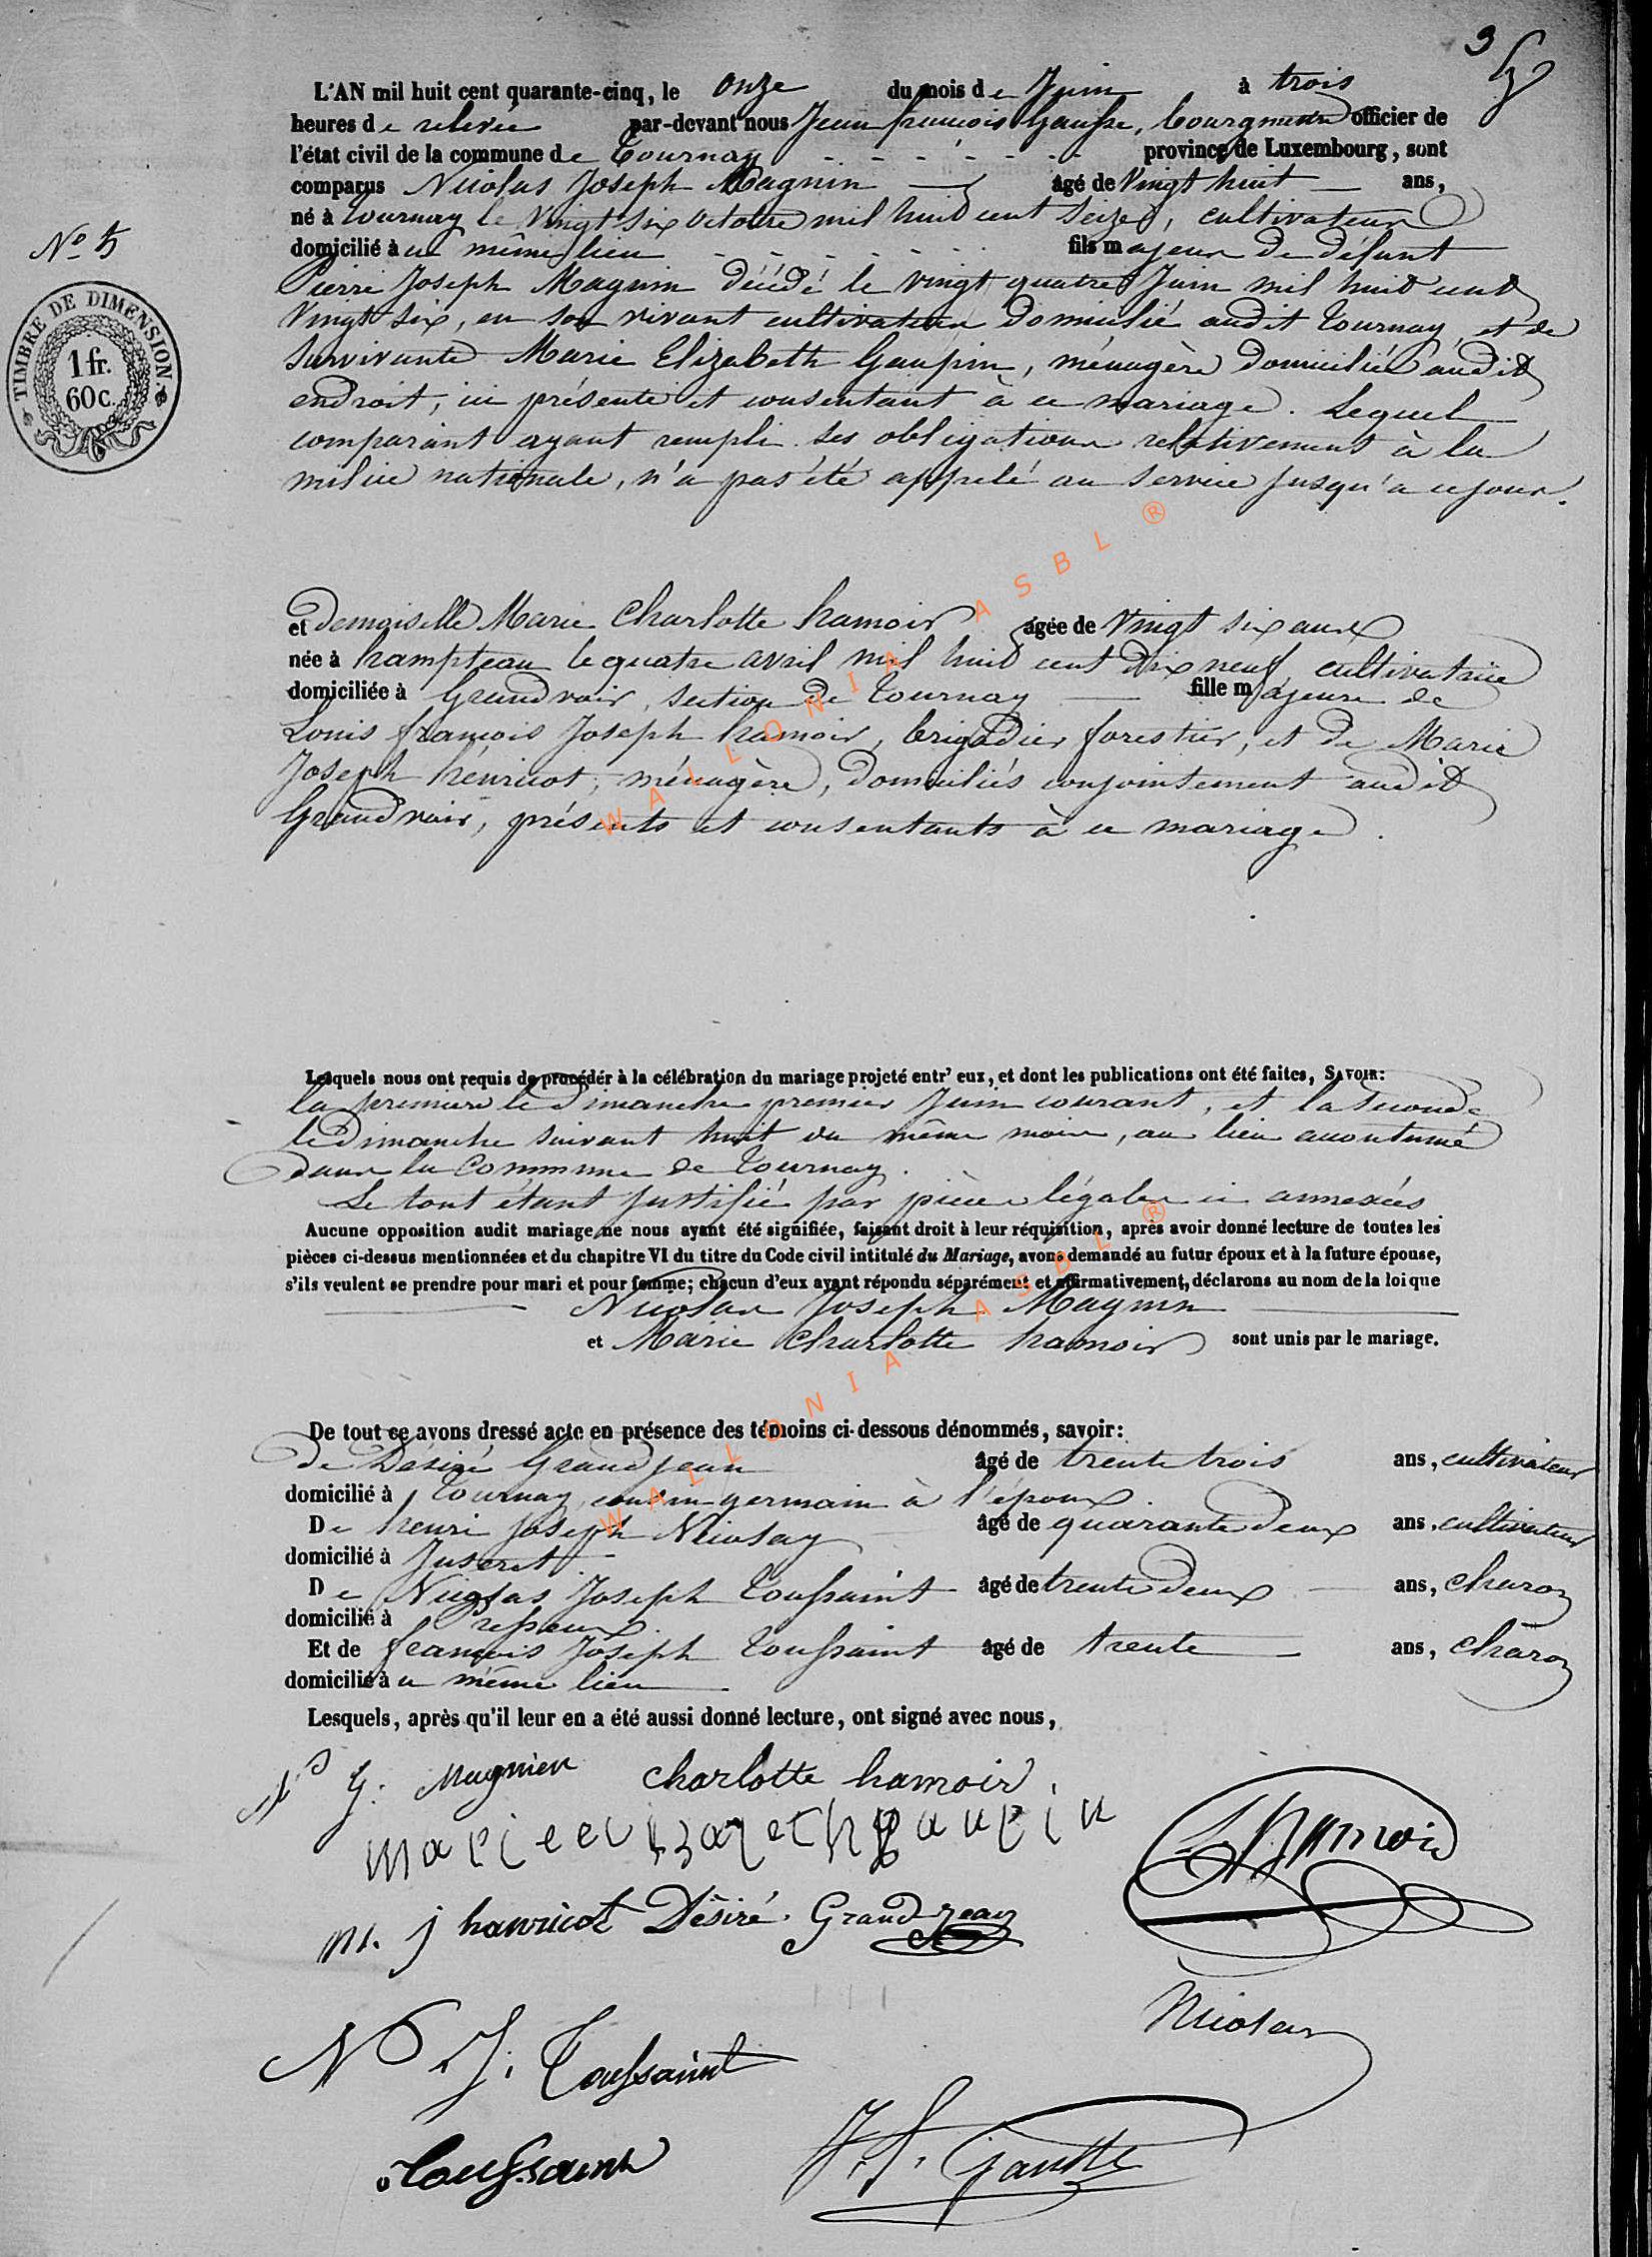 3
L'AN mil huit cent quarante-cinq, le onze du mois de Juin à trois
heures de relevée par-devant nous Jean françois Gausse, bourgmestre officier de
l'état civil de la commune de Tournay province de Luxembourg, sont
comparus Nicolas Joseph Magnin âgé de Vingt huit ans,
né à Tournay le Vingt six octobre mil huit cent seize, cultivateur
N° 5
domicilié à ce même lieu fils majeur de défunt
Pierre Joseph Magnin décédé le vingt quatre Juin mil huit cent
Vingt six, en son vivant cultivateur domicilié audit Tournay, et de
TIMBRE DE DIMENSION
1 fr.
60 c.
Survivante Marie Elizabeth Gaupin, ménagère domiciliée audit
endroit, ici présente et consentant à ce mariage. Lequel
comparant ayant rempli ses obligations relativement à la
milice nationale, n'a pas été appelé au service jusqu'a ce jour.
et Demoiselle Marie Charlotte hamoir âgée de Vingt six ans
née à hampteau le quatre avril mil huit cent dix neuf, cultivatrice
domiciliée à Grandvoir, section de Tournay fille majeure de
Louis françois Joseph hamoir, brigadier forestier, et de Marie
Joseph henricot, ménagère, domiciliés conjointement audit
Grandvoir, présents et consentants à ce mariage.
WALLONIA ASBL ®
Lesquels nous ont requis de procéder à la célébration du mariage projeté entr' eux, et dont les publications ont été faites, SAVOIR:
la premiere le dimanche premier Juin courant, et la seconde
le dimanche suivant huit du même mois, au lieu accoutumé
dans la Commune de Tournay.
Le tout étant justifié par pièces légales ci annexées
Aucune opposition audit mariage ne nous ayant été signifiée, faisant droit à leur réquisition, après avoir donné lecture de toutes les
pièces ci-dessus mentionnées et du chapitre VI du titre du Code civil intitulé du Mariage, avons demandé au futur époux et à la future épouse,
s'ils veulent se prendre pour mari et pour femme; chacun d'eux ayant répondu séparément et affirmativement, déclarons au nom de la loi que
Nicolas Joseph Magnin
et Marie Charlotte hamoir sont unis par le mariage.
WALLONIA ASBL ®
De tout ce avons dressé acte en présence des témoins ci-dessous dénommés, savoir:
De Désiré Grandjean âgé de trente trois ans, cultivateur
domicilié à Tournay, cousin germain à l'époux.
De henri Joseph Nicolay âgé de quarante deux ans, cultivateur
domicilié à Juseret
De Nicolas Joseph Toussaint âgé de trente deux ans, charon
domicilié à
Et de françois Joseph Toussaint âgé de trente ans, charon
domicilié à ce même lieu
Lesquels, après qu'il leur en a été aussi donné lecture, ont signé avec nous,
Magnien charlotte hamoir
marie elizabeth gaupin
hamoir
m. j hanricot Désiré Grandjean
Nicolay
N J. Toussaint
Toussaint
J. f. Gausse